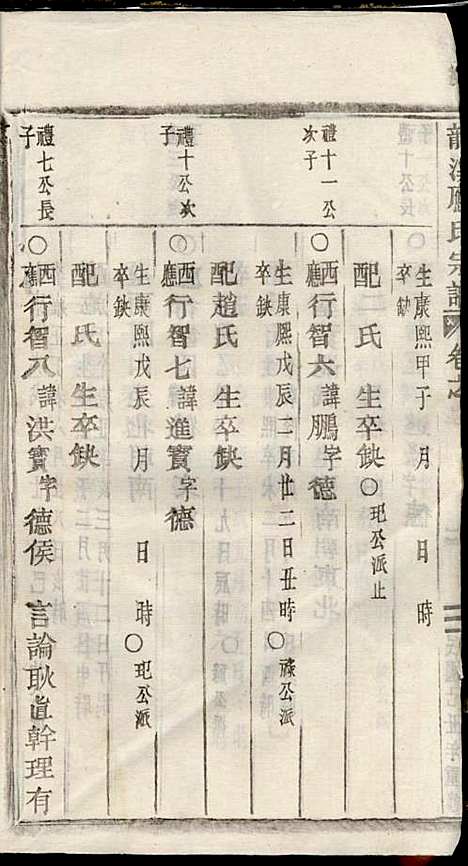 龍溪應氏宗譜 卷之
生康熙甲子 月 日 時
卒缺
配二氏 生卒缺 ○玘公派止
禮十一公次子
○西應行智六諱鵬字德
生康熙戊辰二月廿二日丑時 ○祿公派
卒缺
配趙氏 生卒缺
禮十公次子
○西應行智七諱進寳字德
生康熙戊辰 月 日 時 ○玘公派
卒缺
配 氏 生卒缺
禮七公長子
○西應行智八諱洪寳字德侯 言論耿直幹理有